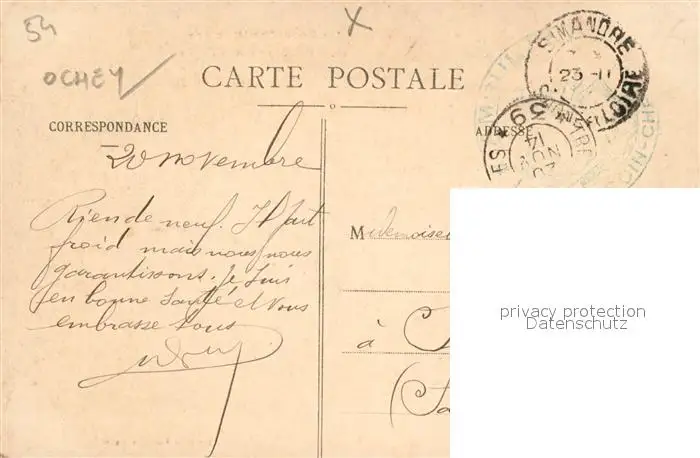 54
X
OCHEY
CARTE POSTALE
CORRESPONDANCE
ADRESSE
SIMANDRE
23 -11
LOIRE
ES * 39
20
NOV
14
20 novembre
Rien de neuf. Il fait
froid mais nous nous
garantissons. Je suis
en bonne santé et vous
embrasse tous
Mademoisel
à
(Sa
privacy protection
Datenschutz